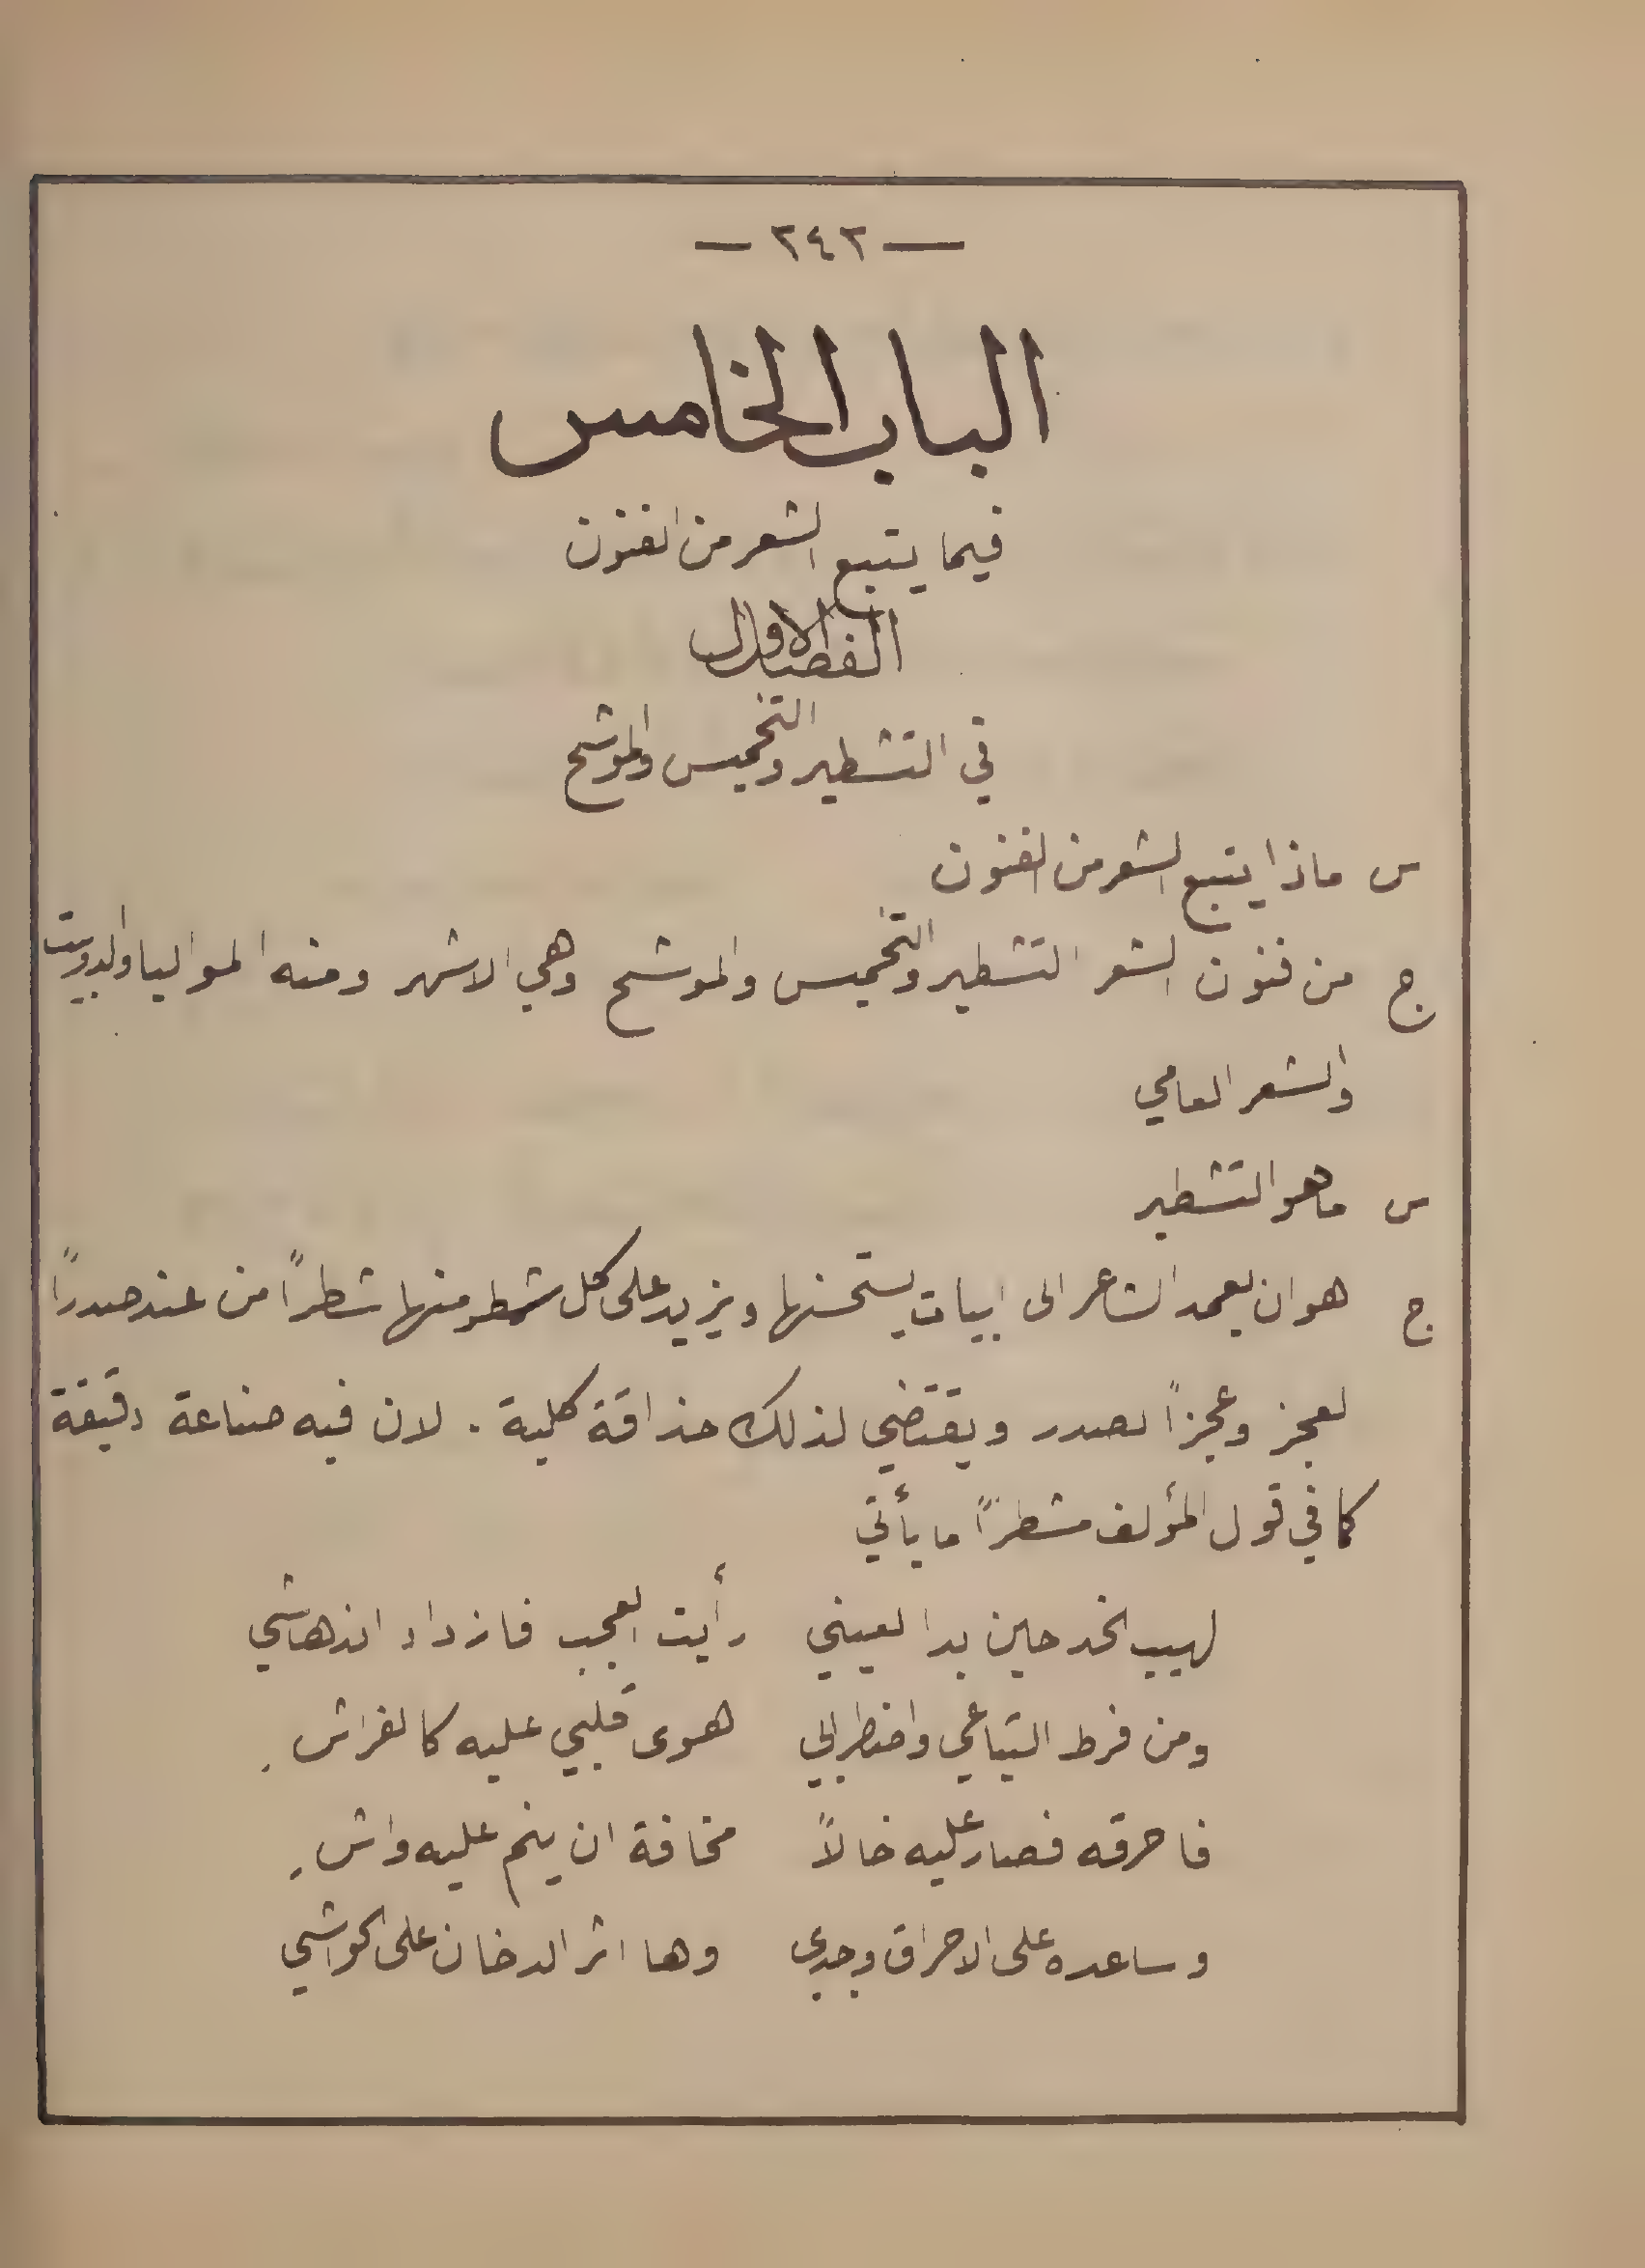 — ٢٤٢ —
الباب الخامس
فيما يتبع الشعر من الفنون
الفصل الاول
في التشطير والتخميس والموشح
س ماذا يتبع الشعر من الفنون
ج من فنون الشعر التشطير والتخميس والموشح وهي الاشهر ومنه المواليا والدوبيت
والشعر العامي
س ما هو التشطير
ج هو ان يعمد الشاعر الى ابيات يستحسنها ويزيد على كل شطر منها شطراً من عند صدراً
لعجز وعجزاً لصدر ويقتضي لذلك حذاقة كلية . لان فيه صناعة دقيقة
كما في قول المؤلف مشطراً ما يأتي
لهيب الخد حين بدا لعيني رأيت العجب فازداد اندهاشي
ومن فرط التياعي واضطرابي هوى قلبي عليه كالفراشِ
فاحرقه فصار عليه خالاً مخافة ان ينم عليه واشِ
وساعده على الاحراق وجدي وها اثر الدخان على الحواشي